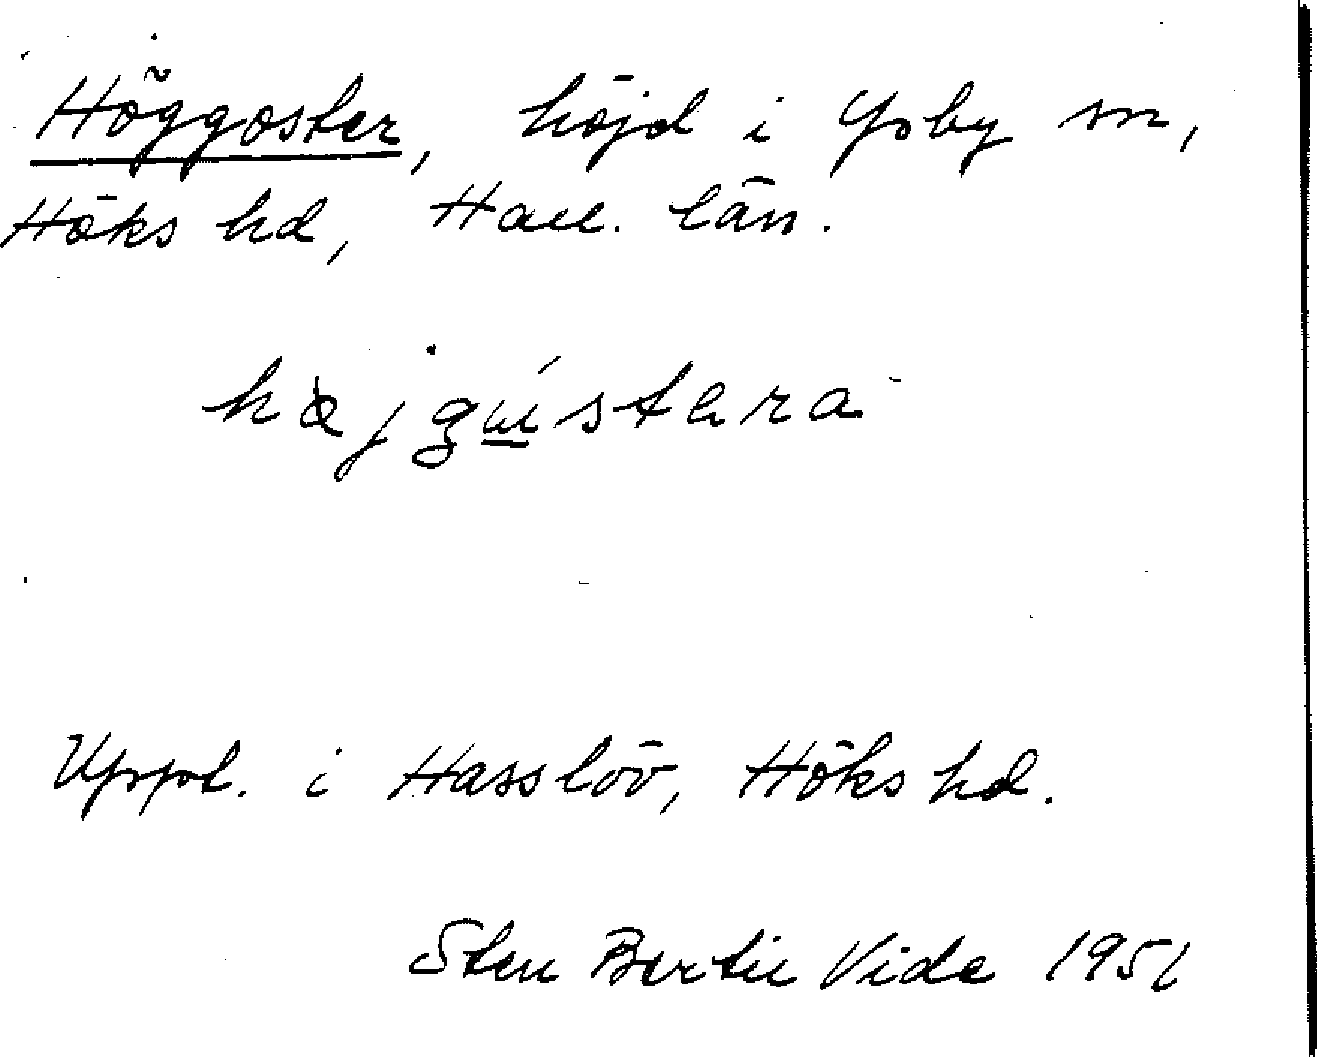 Höggoster, höjd i Ysby sn,
Höks hd, Hall. län.
hæjgu̲ístara
Uppt. i Hasslöv, Höks hd.
Sten Bertil Vide 1951